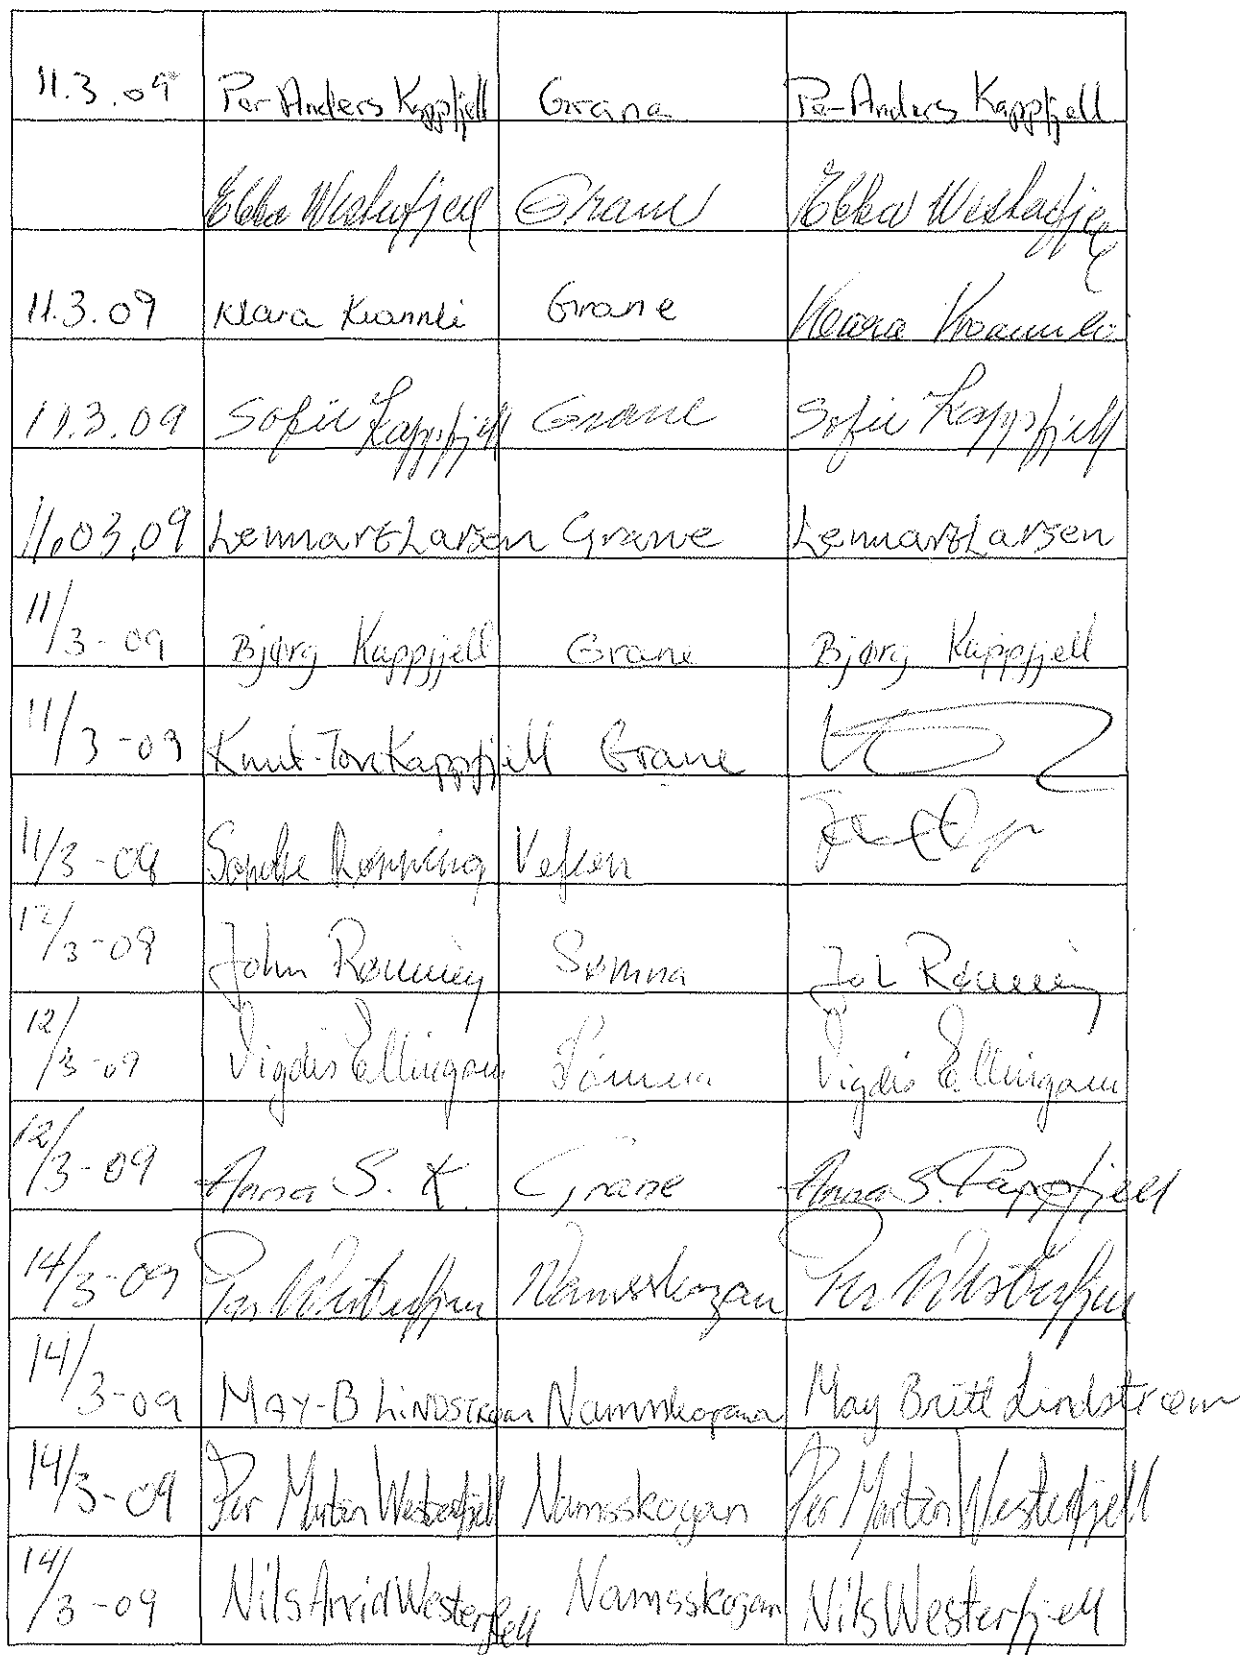 11.3.09 Per-Anders Kappfjell Grane Per-Anders Kappfjell
Ebba Westerfjell Grane Ebba Westerfjell
11.3.09 Klara Kvannli Grane Klara Kvannli
11.3.09 Sofie Kappfjell Grane Sofie Kappfjell
11.03.09 Lennart Larsen Grane Lennart Larsen
11/3-09 Bjørg Kappfjell Grane Bjørg Kappfjell
11/3-09 Knut-Tore Kappfjell Grane
11/3-09 Rønning Vefsn
12/3-09 John Rønning Sømna Joh Rønning
12/3-09 Vigdis Ellingsen Sømna Vigdis Ellingsen
12/3-09 Anna S. K. Grane Anna S. Kappfjell
14/3-09 Per Westerfjell Namsskogan Per Westerfjell
14/3-09 MAY-B LINDSTRØM Namsskogan May Britt Lindstrøm
14/3-09 Per Martin Westerfjell Namsskogan Per Martin Westerfjell
14/3-09 Nils Arvid Westerfjell Namsskogan Nils Westerfjell